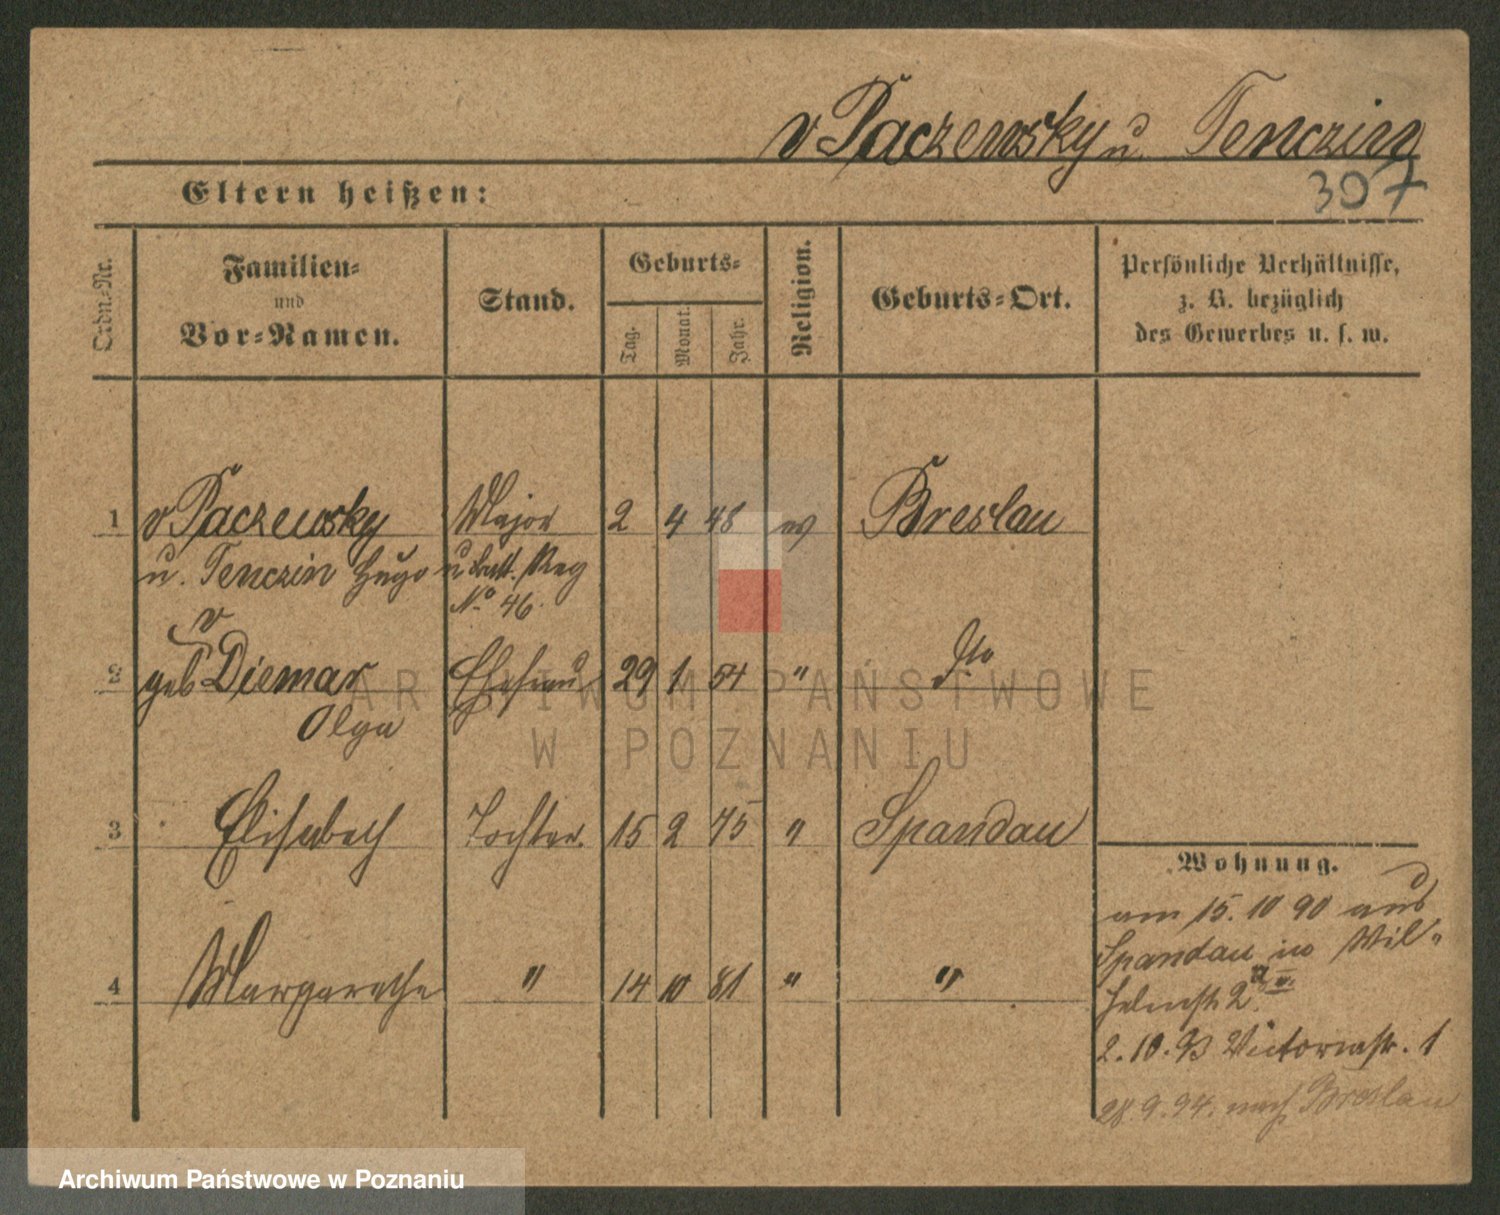 v Paczewsky u. Tenczin
307
Eltern heißen:
Ordn.-Nr.
Familien-
und
Vor-Namen.
Stand.
Geburts-
Tag.
Monat.
Jahr.
Religion.
Geburts-Ort.
Persönliche Verhältnisse,
z. B. bezüglich
des Gewerbes u. s. w.
1 v Paczewsky Major 2 4 48 ev Breslau
u. Tenczin Hugo Reg
No 46.
v
2 geb Diemar Ehefrau 29 1 54 " do
Olga
3 Elisabeth Tochter. 15 2 75 " Spandau
4 Margarethe " 14 10 81 " "
Wohnung.
am 15. 10 90 aus
Spandau in Wil-
helmstr. 2
2. 10. 93 Victoriastr. 1
28. 9. 94. nach Breslau
ARCHIWUM PAŃSTWOWE
W POZNANIU
Archiwum Państwowe w Poznaniu